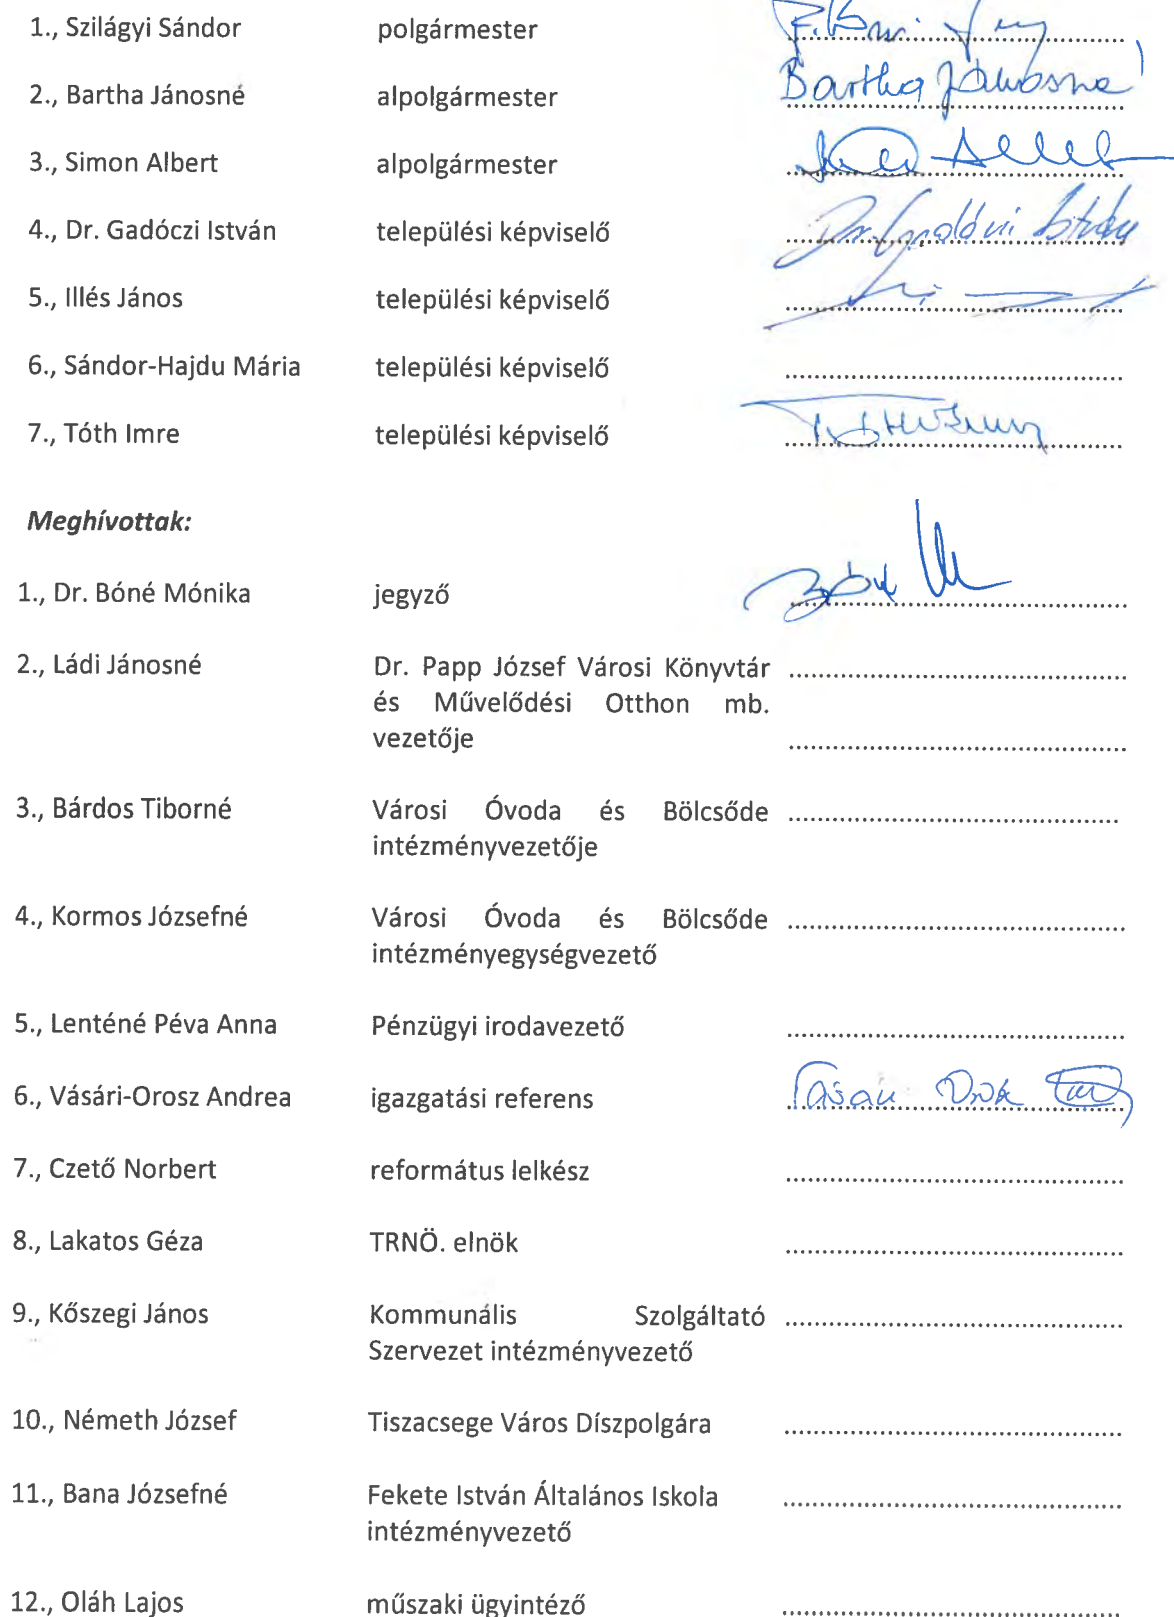 1., Szilágyi Sándor polgármester ........................
2., Bartha Jánosné alpolgármester Bartha Jánosné
3., Simon Albert alpolgármester ........................
4., Dr. Gadóczi István települési képviselő Dr. Gadóczi István
5., Illés János települési képviselő ........................
6., Sándor-Hajdu Mária települési képviselő ........................
7., Tóth Imre települési képviselő Tóth Imre
Meghívottak:
1., Dr. Bóné Mónika jegyző ........................
2., Ládi Jánosné Dr. Papp József Városi Könyvtár ........................
és Művelődési Otthon mb.
vezetője ........................
3., Bárdos Tiborné Városi Óvoda és Bölcsőde ........................
intézményvezetője
4., Kormos Józsefné Városi Óvoda és Bölcsőde ........................
intézményegységvezető
5., Lenténé Péva Anna Pénzügyi irodavezető ........................
6., Vásári-Orosz Andrea igazgatási referens ........................
7., Czető Norbert református lelkész ........................
8., Lakatos Géza TRNÖ. elnök ........................
9., Kőszegi János Kommunális Szolgáltató ........................
Szervezet intézményvezető
10., Németh József Tiszacsege Város Díszpolgára ........................
11., Bana Józsefné Fekete István Általános Iskola ........................
intézményvezető
12., Oláh Lajos műszaki ügyintéző ........................